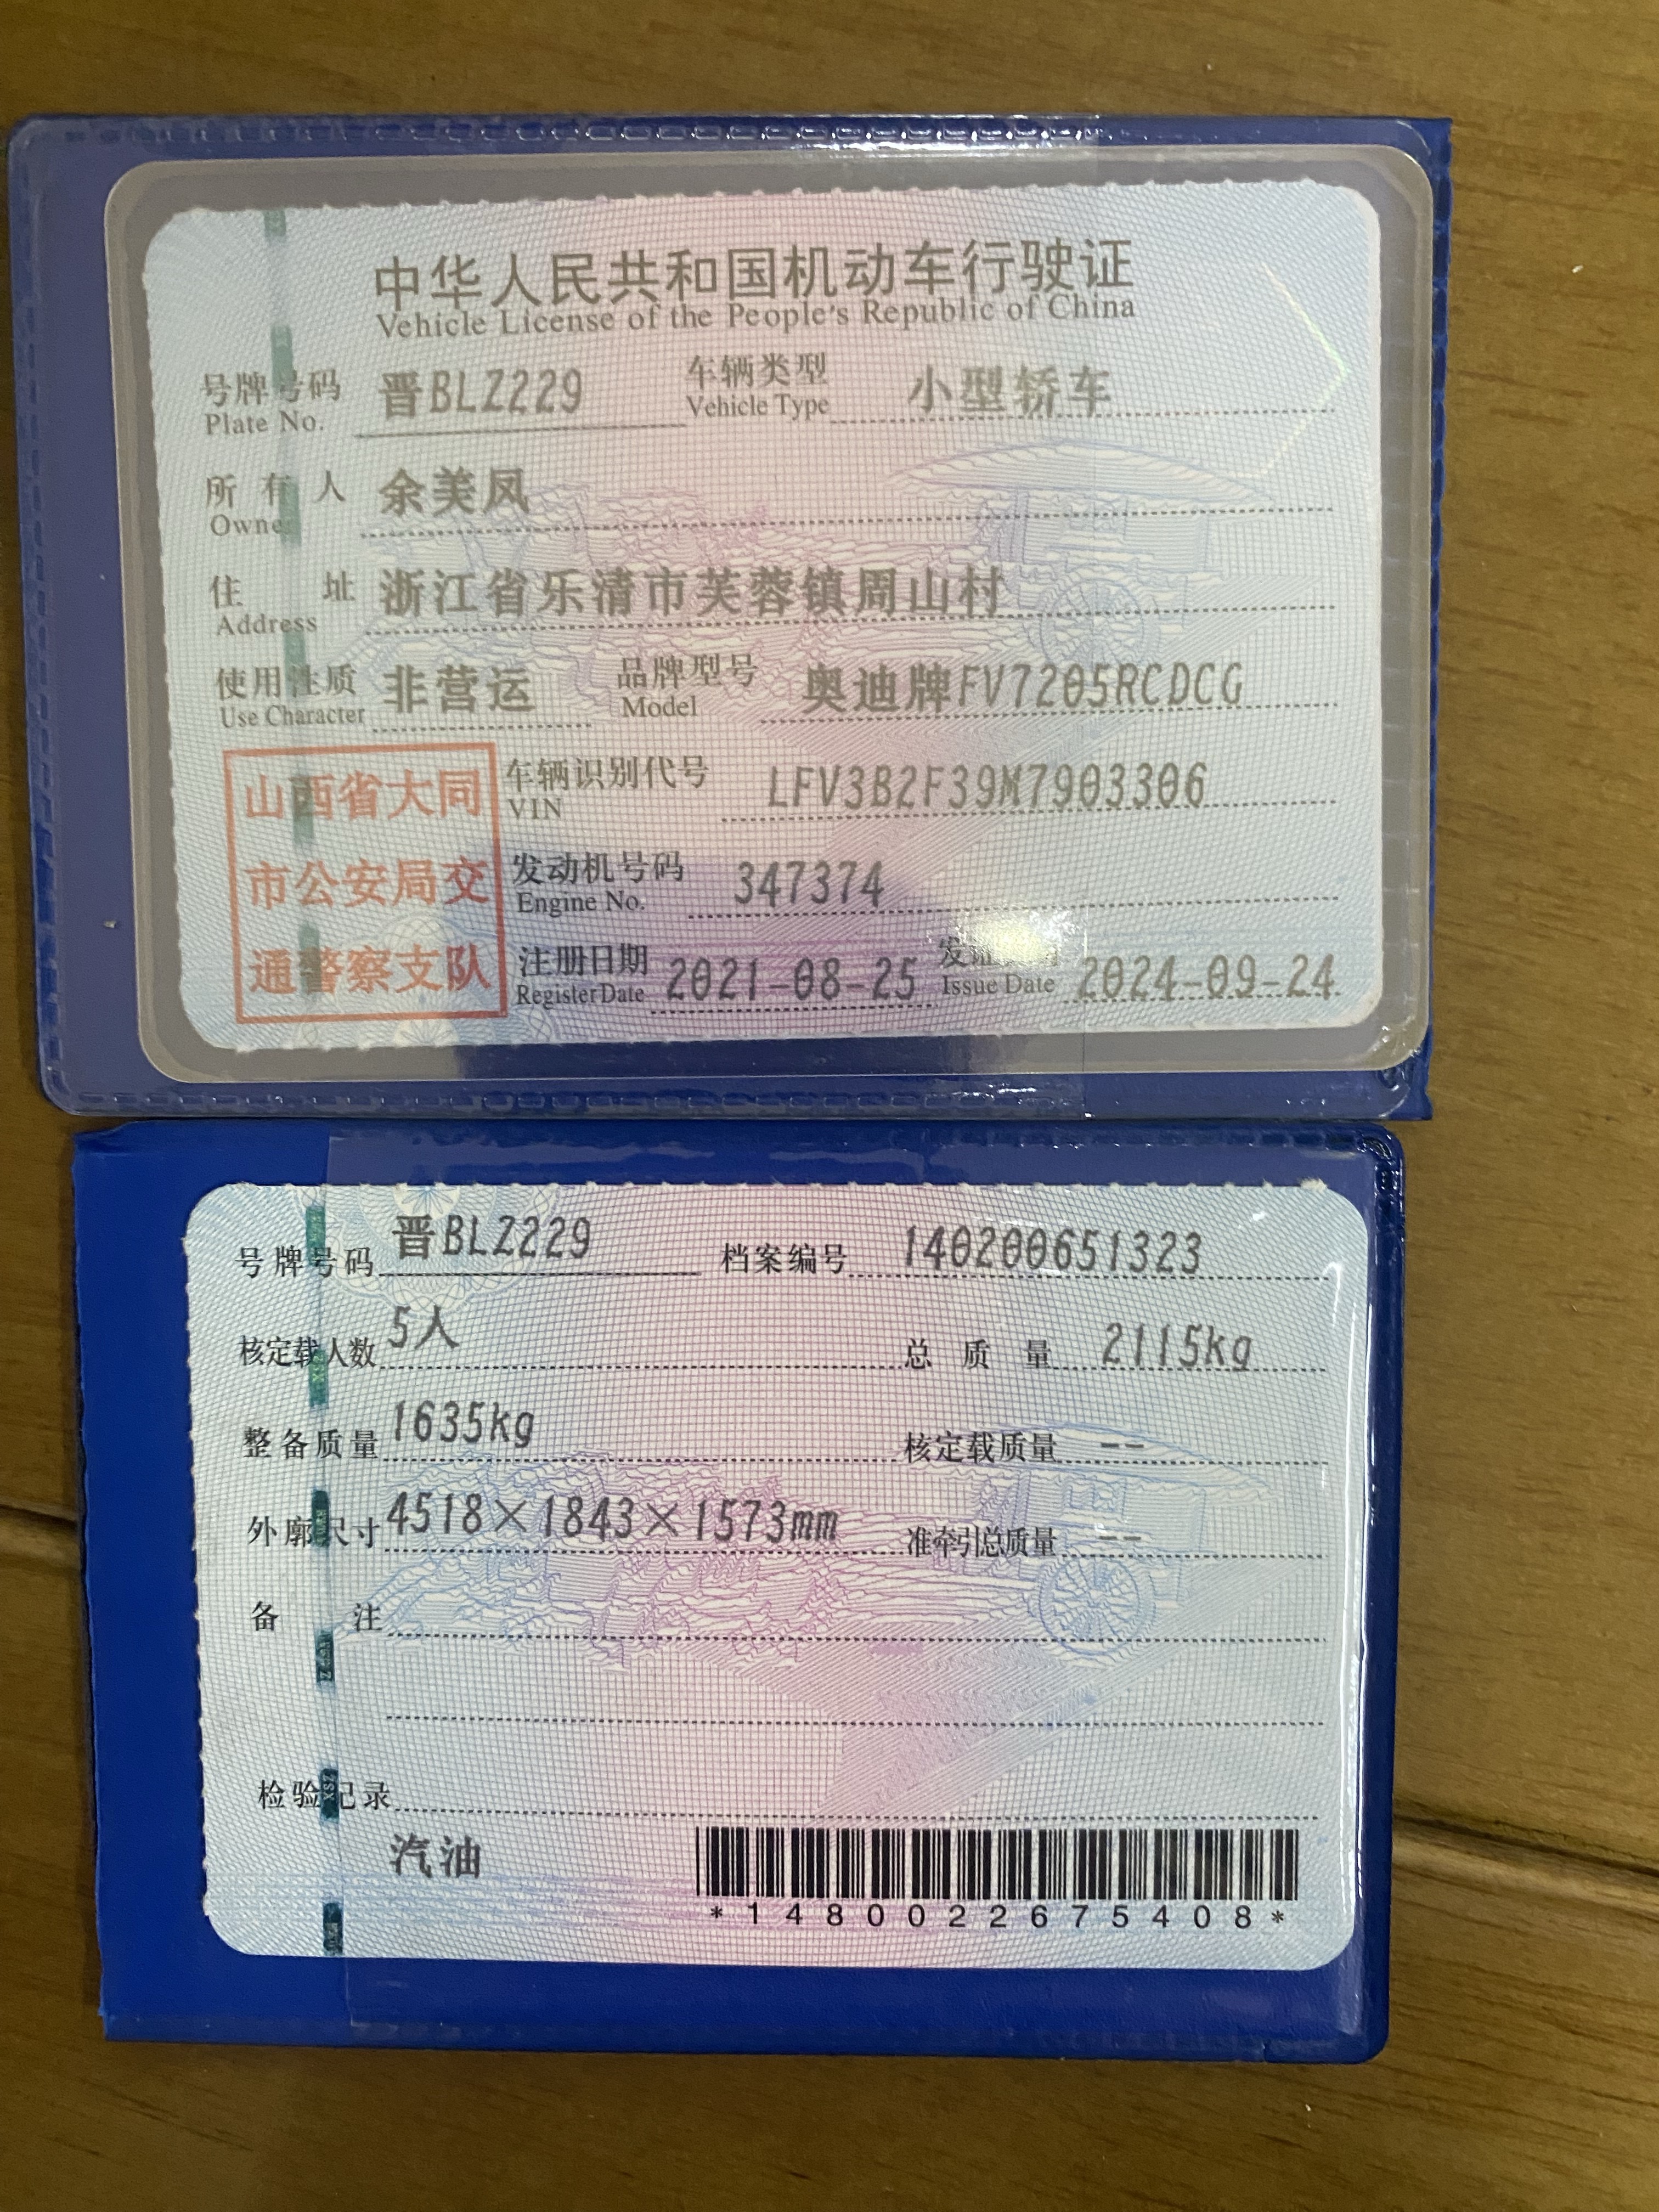 中华人民共和国机动车行驶证
Vehicle License of the People's Republic of China
号牌号码 晋BLZ229 车辆类型 小型轿车
Plate No. Vehicle Type
所有人 余美凤
Owner
住址 浙江省乐清市芙蓉镇周山村
Address
使用性质 非营运 品牌型号 奥迪牌FV7205RCDCG
Use Character Model
山西省大同
市公安局交
通警察支队
车辆识别代号 LFV3B2F39M7903306
VIN
发动机号码 347374
Engine No.
注册日期 2021-08-25 发证 2024-09-24
Register Date Issue Date
号牌号码 晋BLZ229 档案编号 140200651323
核定载人数 5人 总质量 2115kg
整备质量 1635kg 核定载质量 --
外廓尺寸 4518×1843×1573mm 准牵引总质量 --
备注
检验记录
汽油
*1480022675408*